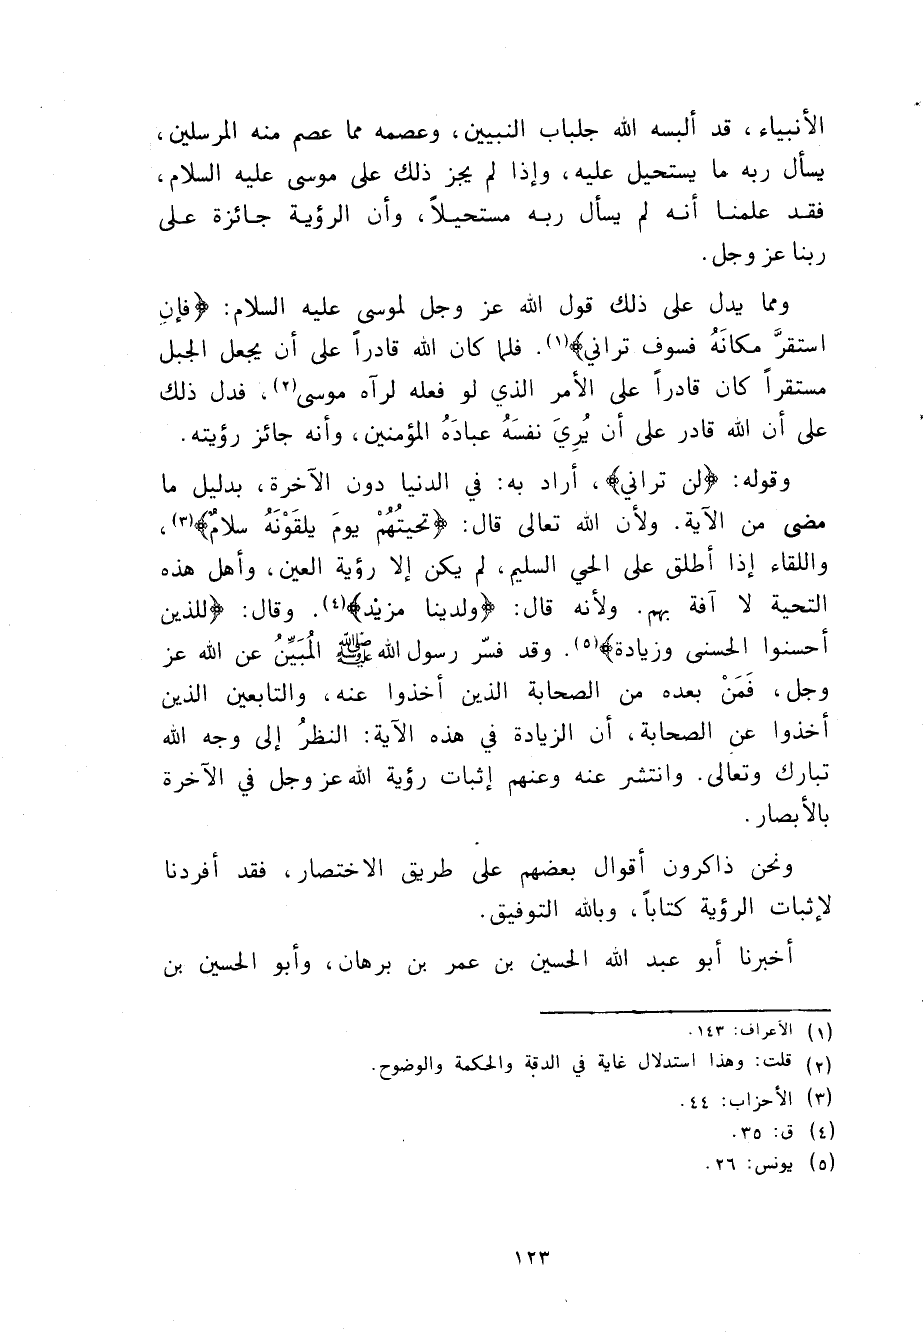 الأنبياء، قد ألبسه الله جلباب النبيين، وعصمه مما عصم منه المرسلين،
يسأل ربه ما يستحيل عليه، وإذا لم يجز ذلك على موسى عليه السلام،
فقد علمنا أنه لم يسأل ربه مستحيلاً، وأن الرؤية جائزة على
ربنا عز وجل.
ومما يدل على ذلك قول الله عز وجل لموسى عليه السلام: ﴿فإنِ
استقرَّ مكانَهُ فسوف تراني﴾(١). فلما كان الله قادراً على أن يجعل الجبل
مستقراً كان قادراً على الأمر الذي لو فعله لرآه موسى(٢)، فدل ذلك
على أن الله قادر على أن يُرِيَ نفسَهُ عبادَهُ المؤمنين، وأنه جائز رؤيته.
وقوله: ﴿لن تراني﴾، أراد به: في الدنيا دون الآخرة، بدليل ما
مضى من الآية. ولأن الله تعالى قال: ﴿تحيتُهُمْ يومَ يلقَوْنَهُ سلامٌ﴾(٣)،
واللقاء إذا أطلق على الحي السليم، لم يكن إلا رؤية العين، وأهل هذه
التحية لا آفة بهم. ولأنه قال: ﴿ولدينا مزيْد﴾(٤). وقال: ﴿للذين
أحسنوا الحسنى وزيادة﴾(٥). وقد فسّر رسول الله ﷺ المُبَيِّنُ عن الله عز
وجل، فَمَنْ بعده من الصحابة الذين أخذوا عنه، والتابعين الذين
أخذوا عن الصحابة، أن الزيادة في هذه الآية: النظرُ إلى وجه الله
تبارك وتعالى. وانتشر عنه وعنهم إثبات رؤية الله عز وجل في الآخرة
بالأبصار.
ونحن ذاكرون أقوال بعضهم على طريق الاختصار، فقد أفردنا
لإثبات الرؤية كتاباً، وبالله التوفيق.
أخبرنا أبو عبد الله الحسين بن عمر بن برهان، وأبو الحسين بن
(١) الأعراف: ١٤٣.
(٢) قلت: وهذا استدلال غاية في الدقة والحكمة والوضوح.
(٣) الأحزاب: ٤٤.
(٤) ق: ٣٥.
(٥) يونس: ٢٦.
١٢٣